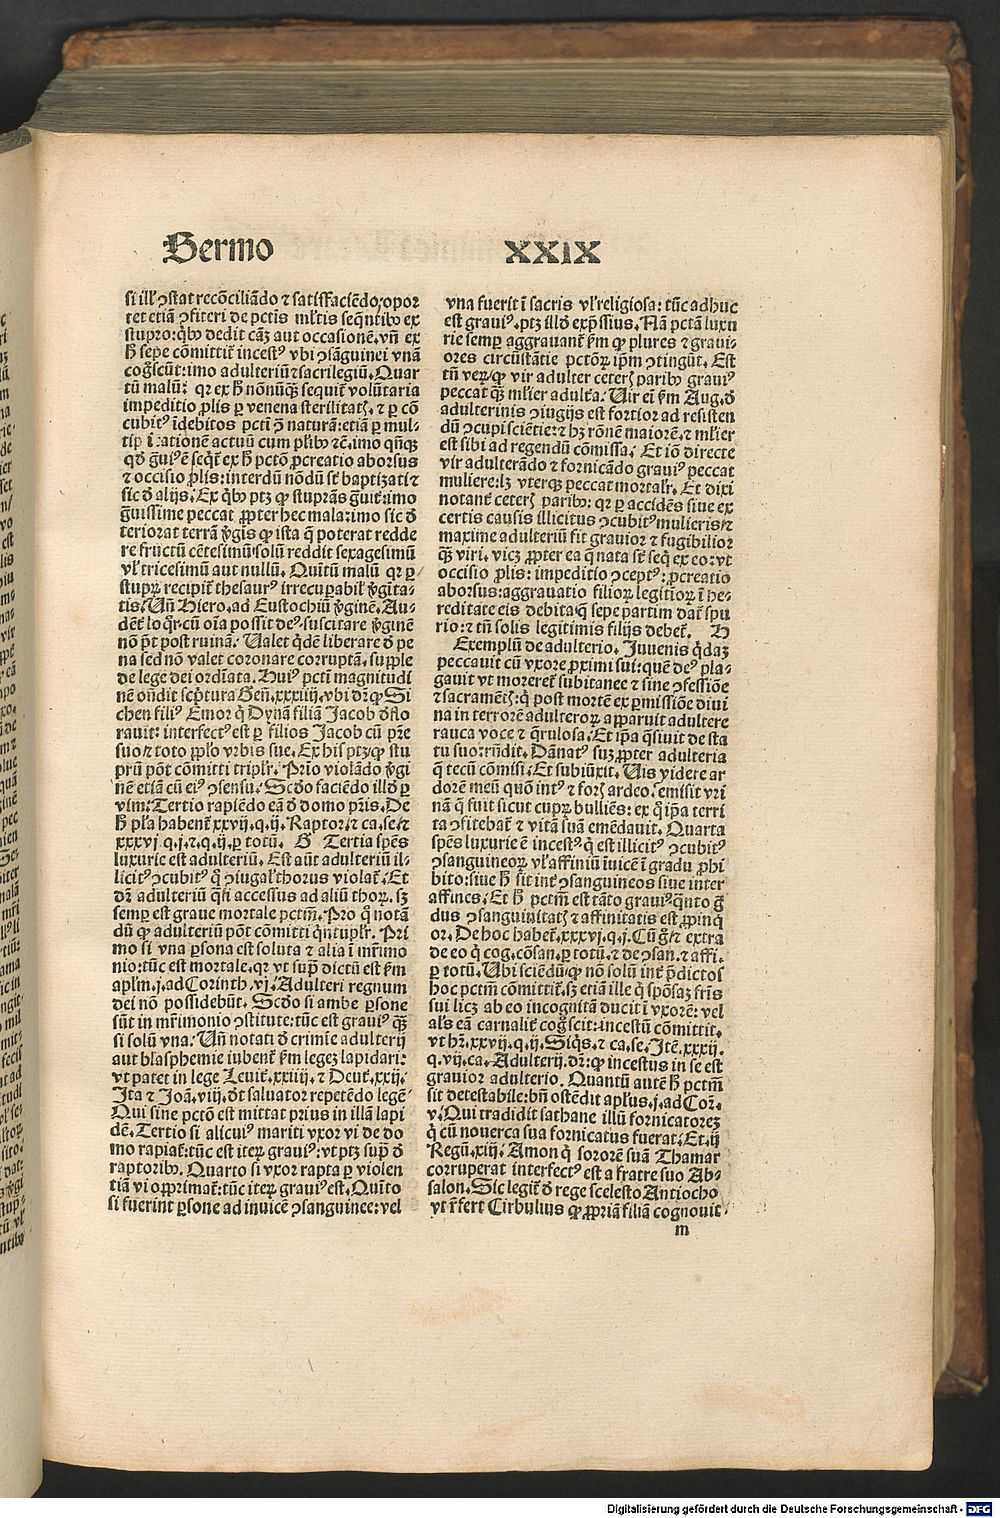 Sermo XXIX
si illi ꝯstat recōciliādo ⁊ satiffaciēdo, opor
tet etiā ꝯfiteri de pctis ml'tis seq̄ntibꝰ ex
stupro: qͥbꝰ dedit cāȝ aut occasionē. vn̄ ex
h̄ sepe cōmittit̄ incestꝰ vbi ꝯsāguinei vnā
cogͦscūt: imo adulteriū ⁊ sacrilegiū. Quar
tū malū: qꝛ ex h̄ nōnūqȝ sequit̄ volūtaria
impeditio ꝓlis ꝑ venena sterilitatꝭ. ⁊ ꝑ cō
cubitꝰ īdebitos pcti ꝯ̄ naturā: etiā ꝑ mul-
tip ī ationē actuū cum pl'ibꝰ ⁊ē. imo qn̄qȝ
qd̄ gͣuiꝰ ē seqͥt̄ ex h̄ pctō ꝓcreatio aborsus
⁊ occisio ꝓlis: interdū nōdū sc̄ baptizati ⁊
sic d̓ alijs. Ex qͥbꝰ ptȝ ꝙ stuprās gͣuit̄: imo
gͣuissime peccat ꝓpter hec mala: imo sic d̓
teriorat terrā v̓gis ꝙ ista q̄ poterat redde
re fructū cētesimū solū reddit sexagesimū
vl' tricesimū aut nullū. Quītū malū qꝛ ꝑ
stupꝝ recipit̄ thesaurꝰ irrecuꝑabil' v̓gīta-
tis. Vn̄ Hiero. ad Eustochiū v̓ginē. Au-
dēt̓ loqͣr. cū oīa possit deꝰ, suscitare v̓ginē
nō pōt post ruinā. Valet qͥdē liberare d̓ pe
na sed nō valet coronare corruptā. supple
de lege dei ordīata. Huiꝰ pcti magnitudi
nē on̄dit scͥptura Gen̄. xxxiiij. vbi dr̄ ꝙ Si
chen filiꝰ Emor qͥ Dynā filiā Jacob d̓flo
rauit: interfectꝰ est ꝑ filios Jacob cū pr̄e
suo ⁊ toto pplō vrbis sue. Ex his ptȝ ꝙ stu
prū pōt cōmitti tripl'r. Prīo violādo v̓gi
nē etiā cū eiꝰ ꝯsensu. Scd̄o faciēdo illd̓ ꝑ
vim. Tertio rapiēdo eā d̓ domo pr̄is. De
h̄ pl'a habent̄ xxvij. q. ij. Raptor. ⁊ ca. se. ⁊
xxxvj. q. j. ⁊. q. ij. ꝑ totū. G Tertia spēs
luxurie est adulteriū. Est aūt adulteriū il-
licitꝰ ꝯcubitꝰ qͥ ꝯiugal' thorus violat̄. Et
dr̄ adulteriū qͣsi accessus ad aliū thoꝝ. sȝ
semꝑ est graue mortale pctm̄. Pro qͦ notā
dū ꝙ adulteriū pōt cōmitti qͥntupl'r. Pri
mo si vna ꝑsona est soluta ⁊ alia ī mr̄imo
nio: tūc est mortale. qꝛ vt supͣ dictū est ẜm
apl'm. j. ad Corinth. vj. Adulteri regnum
dei nō possidebūt. Scd̄o si ambe ꝑsone
sūt in mr̄imonio ꝯstitute: tūc est grauiꝰ qͣȝ
si solū vna. Vn̄ notati d̓ crimīe adulterij
aut blasphemie iubent̄ ẜm legeȝ lapidari:
vt patet in lege Leuit̄. xxiiij. ⁊ Deut̄. xxij.
Ita ⁊ Joā. viij. dt̄ saluator repetēdo legē
Qui sine pctō est mittat prius in illā lapi
dē. Tertio si alicuiꝰ mariti vxor vi de do
mo rapiat̄: tūc est iteꝝ grauiꝰ: vt ptȝ supͣ d̓
raptoribꝰ. Quarto si vxor rapta ꝑ violen
tiā vi opprimat̄: tūc iteꝝ grauiꝰ est. Quīto
si fuerint ꝑsone ad inuicē ꝯsanguinee: vel
vna fuerit ī sacris vl' religiosa: tūc adhuc
est grauiꝰ. ptȝ illd̓ exp̄ssius. Nā pctā luxu
rie semꝑ aggrauant̄ ẜm ꝙ plures ⁊ graui-
ores circūstātie pctōꝝ ip̄m ꝯtingūt. Est
tn̄ verꝝ ꝙ vir adulter ceterꝭ paribꝰ grauiꝰ
peccat qͣȝ ml'ier adult̓a. Vir ei̅ ẜm Aug. d̓
adulterinis ꝯiugijs est fortior ad resisten
dū ꝯcupisciētie: ⁊ hȝ rōnē maiorē. ⁊ ml'ier
est sibi ad regendū cōmissa. Et iō directe
vir adulterādo ⁊ fornicādo grauiꝰ peccat
muliere: lȝ vterqȝ peccat mortalr̄. Et dixi
notant̓ ceterꝭ paribꝰ: qꝛ ꝑ accidēs siue ex
certis causis illicitus ꝯcubitꝰ mulieris ⁊
maxime adulteriū fit grauior ⁊ fugibilior
qͣȝ viri. vicȝ ꝓpter ea q̄ nata sc̄ seqͥ ex eo: vt
occisio ꝓlis: impeditio ꝯceptꝰ: ꝓcreatio
aborsus: aggrauatio filioꝝ legitioꝝ ī he-
reditate eis debita qͣ sepe partim dat̄ spu
rio: ⁊ tn̄ solis legitimis filijs debet̄. H
Exemplū de adulterio. Juuenis qͥdaȝ
peccauit cū vxore ꝓximi sui: quē deꝰ pla-
gauit vt moreret̄ subitanee ⁊ sine ꝯfessiōe
⁊ sacramētꝭ: qͥ post mortē ex ꝑmissiōe diui
na in terrorē adulteroꝝ apparuit adultere
rauca voce ⁊ qͥrulosa. Et ip̄a q̄siuit de sta
tu suo: rn̄dit. Dānatꝰ suȝ ꝓpter adulteria
q̄ tecū cōmisi. Et subiūxit. Vis videre ar
dorē meū quō intꝰ ⁊ forꝭ ardeo. emisit vri
nā q̄ fuit sicut cupꝝ bulliēs: ex qͦ ip̄a terri
ta ꝯfitebat̄ ⁊ vitā suā emēdauit. Quarta
spēs luxurie ē incestꝰ qͥ est illicitꝰ ꝯcubitꝰ
ꝯsanguineoꝝ vl' affiniū īuicē ī gradu ꝓhi
bito: siue h̄ sit int̓ ꝯsanguineos siue inter
affines. Et h̄ pctm̄ est tāto grauiꝰ qͣnto gͣ
dus ꝯsanguinitatꝭ ⁊ affinitatis est ꝓpinq̄
or. De hoc habet̄. xxxvj. q. j. Cū gͣ. ⁊ extra
de eo qͥ cog. cōsan. ꝑ totū. ⁊ de ꝯsan. ⁊ affi.
ꝑ totū. Vbi sciēdū ꝙ nō solū int̓ p̄dictos
hoc pctm̄ cōmittit̄. sȝ etiā ille qͥ spōsaȝ fr̄is
sui licȝ ab eo incognitā ducit ī vxorē: vel
al's eā carnalit̓ cogͦscit: incestū cōmittit.
vt hr̄. xxvij. q. ij. Siqͥs. ⁊ ca. se. Itē. xxxij.
q. vij. ca. Adulterij. dr̄: ꝙ incestus in se est
grauior adulterio. Quantū autē h̄ pctm̄
sit detestabile: bn̄ ostēdit apl'us. j. ad Coꝝ.
v. Qui tradidit sathane illū fornicatoreȝ
qͥ cū nouerca sua fornicatus fuerat. Et. ij
Regū. xiij. Amon qͥ sororē suā Thamar
corruperat interfectꝰ est a fratre suo Ab-
salon. Sic legit̄ d̓ rege scelesto Antiocho
vt r̄fert Cirbulius ꝙ ꝓpriā filiā cognouit.
m
Digitalisierung gefördert durch die Deutsche Forschungsgemeinschaft - DFG